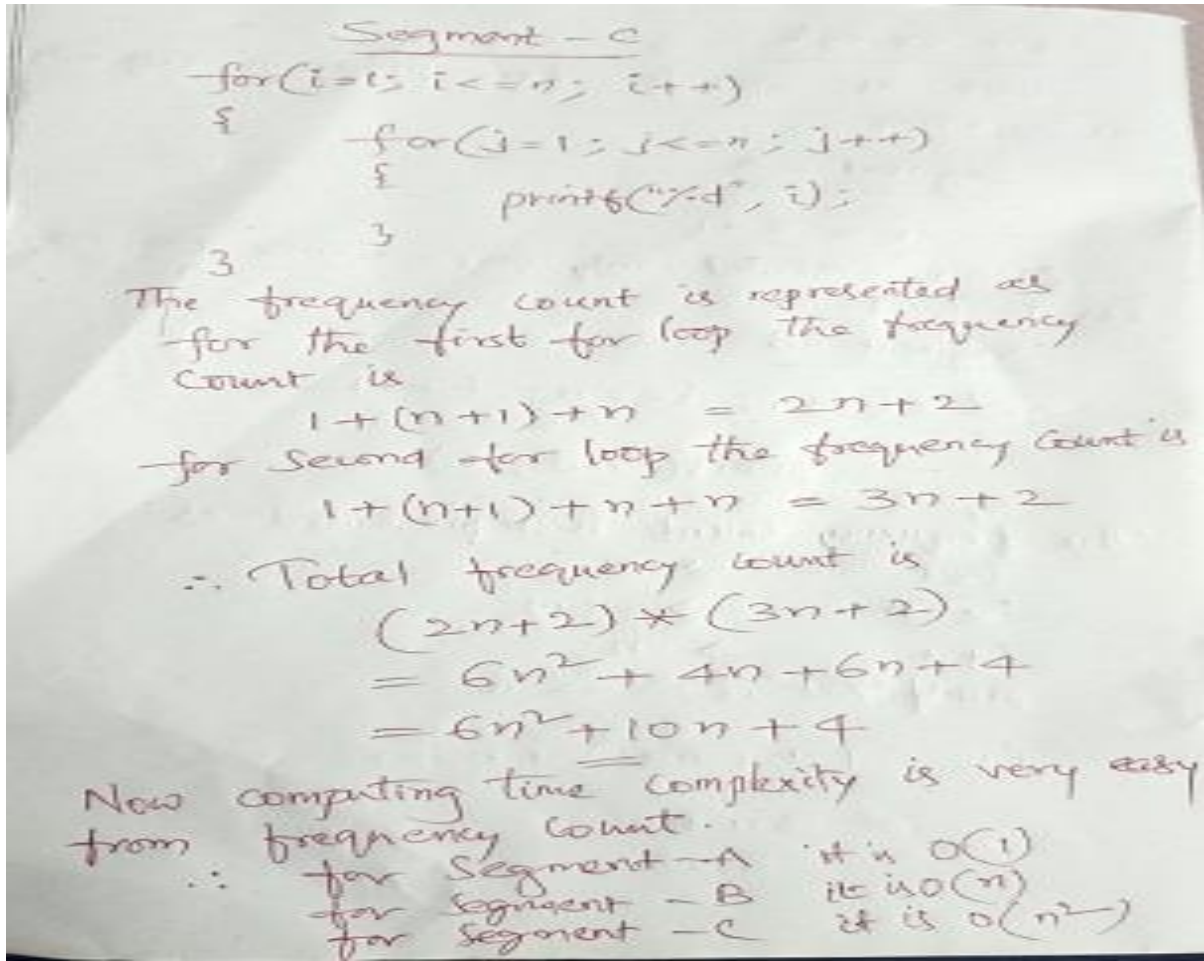 Segment - C
for(i=1; i<=n; i++)
{
for(j=1; j<=n; j++)
{
printf("%d", i);
}
}
The frequency count is represented as
for the first for loop the frequency
count is
1+(n+1)+n = 2n+2
for second for loop the frequency count is
1+(n+1)+n+n = 3n+2
∴ Total frequency count is
(2n+2)*(3n+2)
= 6n²+4n+6n+4
= 6n²+10n+4
Now computing time complexity is very easy
from frequency count.
∴ for Segment -A it is O(1)
for Segment - B it is O(n)
for Segment - C it is O(n²)